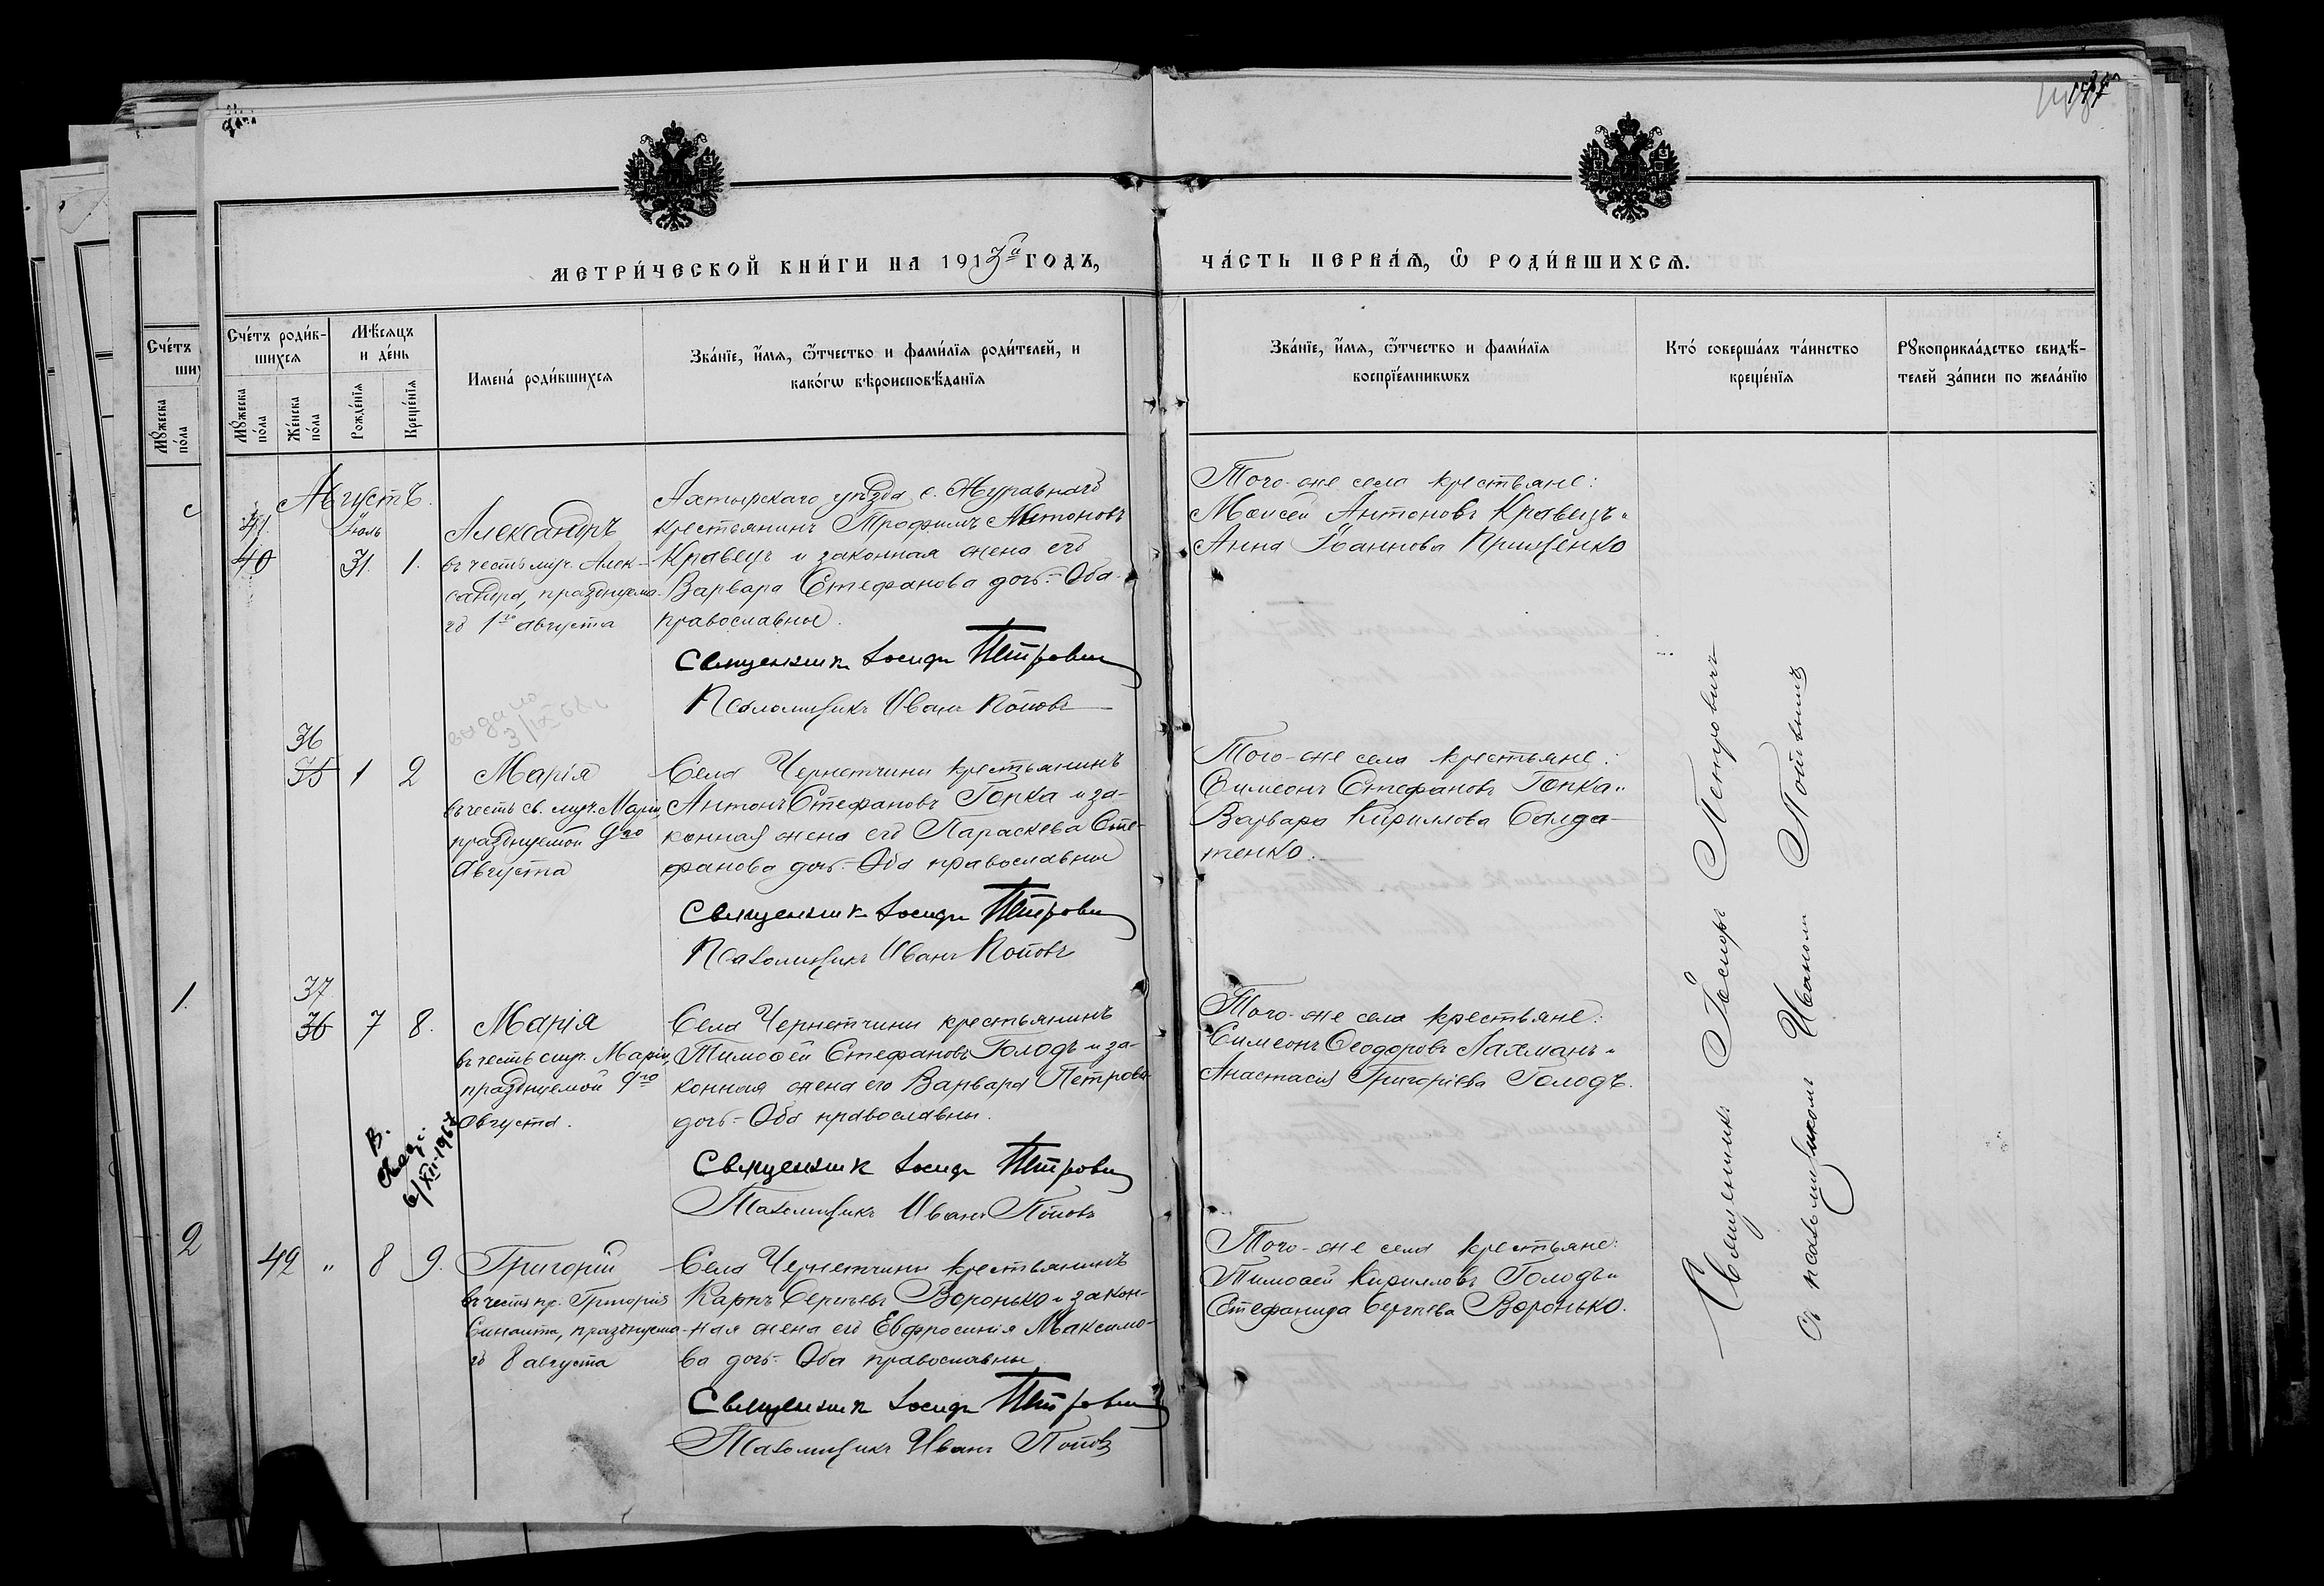 МЕТРИ́ЧЕСКОЙ КНИ́ГИ НА 1913й ГОДЪ,
ЧА́СТЬ ПЕ́РВАЯ, Ѡ РОДИ́ВШИХСЯ.
Сче́тъ роди́в-
шихся
Мѣ́сяцъ
и де́нь
Имена́ роди́вшихся
Зва́нїе, и́мя, ѻ҆́тчество и фами́лїя роди́телей, и
како́гѡ вѣроисповѣ́данїя
Мꙋ́жеска
по́ла
Же́нска
по́ла
Рожде́нїя
Креще́нїя
Зва́нїе, и́мя, ѻ҆́тчество и фами́лїя
воспрїе́мникѡвъ
Кто́ соверша́лъ та́инство
креще́нїя
Рꙋкоприкла́дство свидѣ́-
телей за́писи по жела́нїю
Августъ.
41.
40
Іюль
31. 1.
Александръ
въ честь муч. Алек-
сандра, празднуема-
го 1го августа
Ахтырскаго уѣзда, с. Журавнаго
крестьянинъ Трофимъ Антоновъ
Кравецъ и законная жена его
Варвара Стефанова дочь.- Оба
православны.
Священникъ Іосифъ Петрович
Псаломщикъ Иванъ Поповъ
Того-же села крестьяне:
Моисей Антоновъ Кравецъ и
Анна Іоаннова
выдано
36
35 1 2
Марія
въ честь св. муч. Маріи,
празднуемой 9го
Августа
Села Чернетчины крестьянинъ
Антонъ Стефановъ Гопка и за-
конная жена его Параскева Сте-
фанова дочь.- Оба православны
Священникъ Іосифъ Петрович
Псаломщикъ Иванъ Поповъ
Того-же села крестьяне:
Симеонъ Стефановъ Гопка и
Варвара Кириллова Солда-
тенко.
37
36 7 8.
Марія
въ честь муч. Маріи,
празднуемой 9го
Августа.
Села Чернетчины крестьянинъ
Тимофей Стефановъ Голодъ и за-
конная жена его Варвара Петрова
дочь.- Оба православны.
Священникъ Іосифъ Петрович
Псаломщикъ Иванъ Поповъ
Того-же села крестьяне:
Симеонъ Ѳеодоровъ Лахманъ и
Анастасія Григоріева Голодъ.
В.
6/XII-1967
42 " 8 9.
Григорій
въ честь пр. Григорія
Синаита, празднуема-
го 8 августа
Села Чернетчины крестьянинъ
Карпъ Сергіевъ Воронько и закон-
ная жена его Евфросинія Максимо-
ва дочь.- Оба православны
Священникъ Іосифъ Петрович
Псаломщикъ Иванъ Поповъ
Того-же села крестьяне:
Тимофей Кирилловъ Голодъ и
Стефанида Сергіева Воронько.
Священникъ Іосифъ Петровичъ
съ псаломщикомъ Иваномъ Поповымъ
Сче́тъ
Мꙋ́жеска
по́ла
1.
2